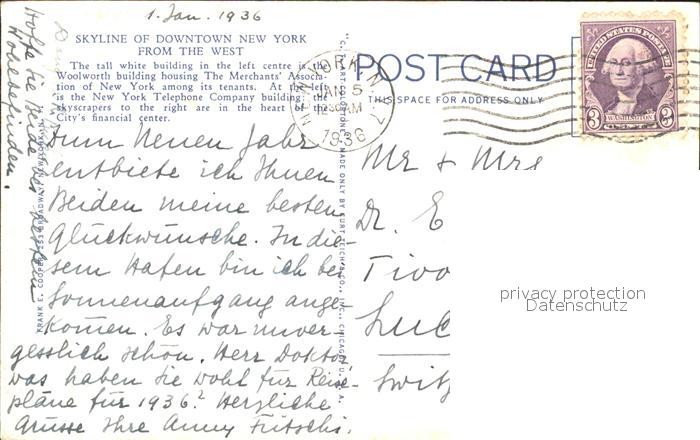 1. Jan. 1936
SKYLINE OF DOWNTOWN NEW YORK
FROM THE WEST
The tall white building in the left centre is the
Woolworth building housing The Merchants' Associa-
tion of New York among its tenants. At the left
is the New York Telephone Company building; the
skyscrapers to the right are in the heart of the
City's financial center.
Zum Neuen Jahr
entbiete ich Ihnen
Beiden meine besten
Glückwünsche. In die-
sem Hafen bin ich bei
Sonnenaufgang ange-
komen. Es war unver-
gesslich schön. Herr Doktor
was haben Sie wohl für Reise-
pläne für 1936? Herzliche
Grüsse Ihre Anny Fritschi.
Hoffe Sie
Wohlbefinden.
FRANK E. COOPER, 253 BROADWAY, NEW YORK
POST CARD
THIS SPACE FOR ADDRESS ONLY
NEW YORK, N.Y.
JAN 5
AM
1936
UNITED STATES POSTAGE
WASHINGTON
3 CENTS 3
MADE ONLY BY CURT TEICH & CO., INC., CHICAGO, U.S.A.
Mr & Mrs
Dr. E
Tivo
Luc
Switz
privacy protection
Datenschutz